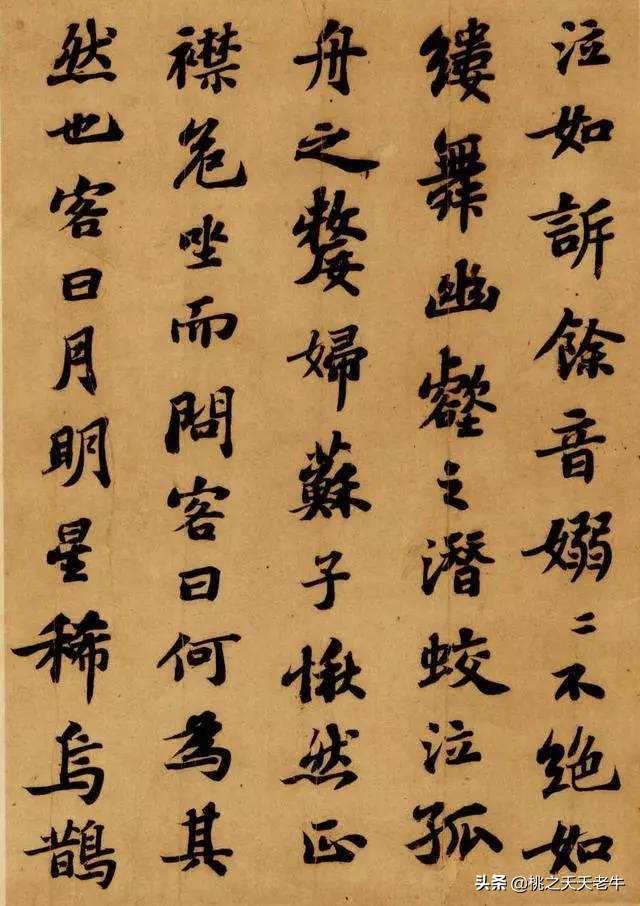 泣如訴餘音嫋〻不絕如
縷舞幽壑之潛蛟泣孤
舟之嫠婦蘇子愀然正
襟危坐而問客曰何為其
然也客曰月明星稀烏鵲
头条 @桃之夭夭老牛